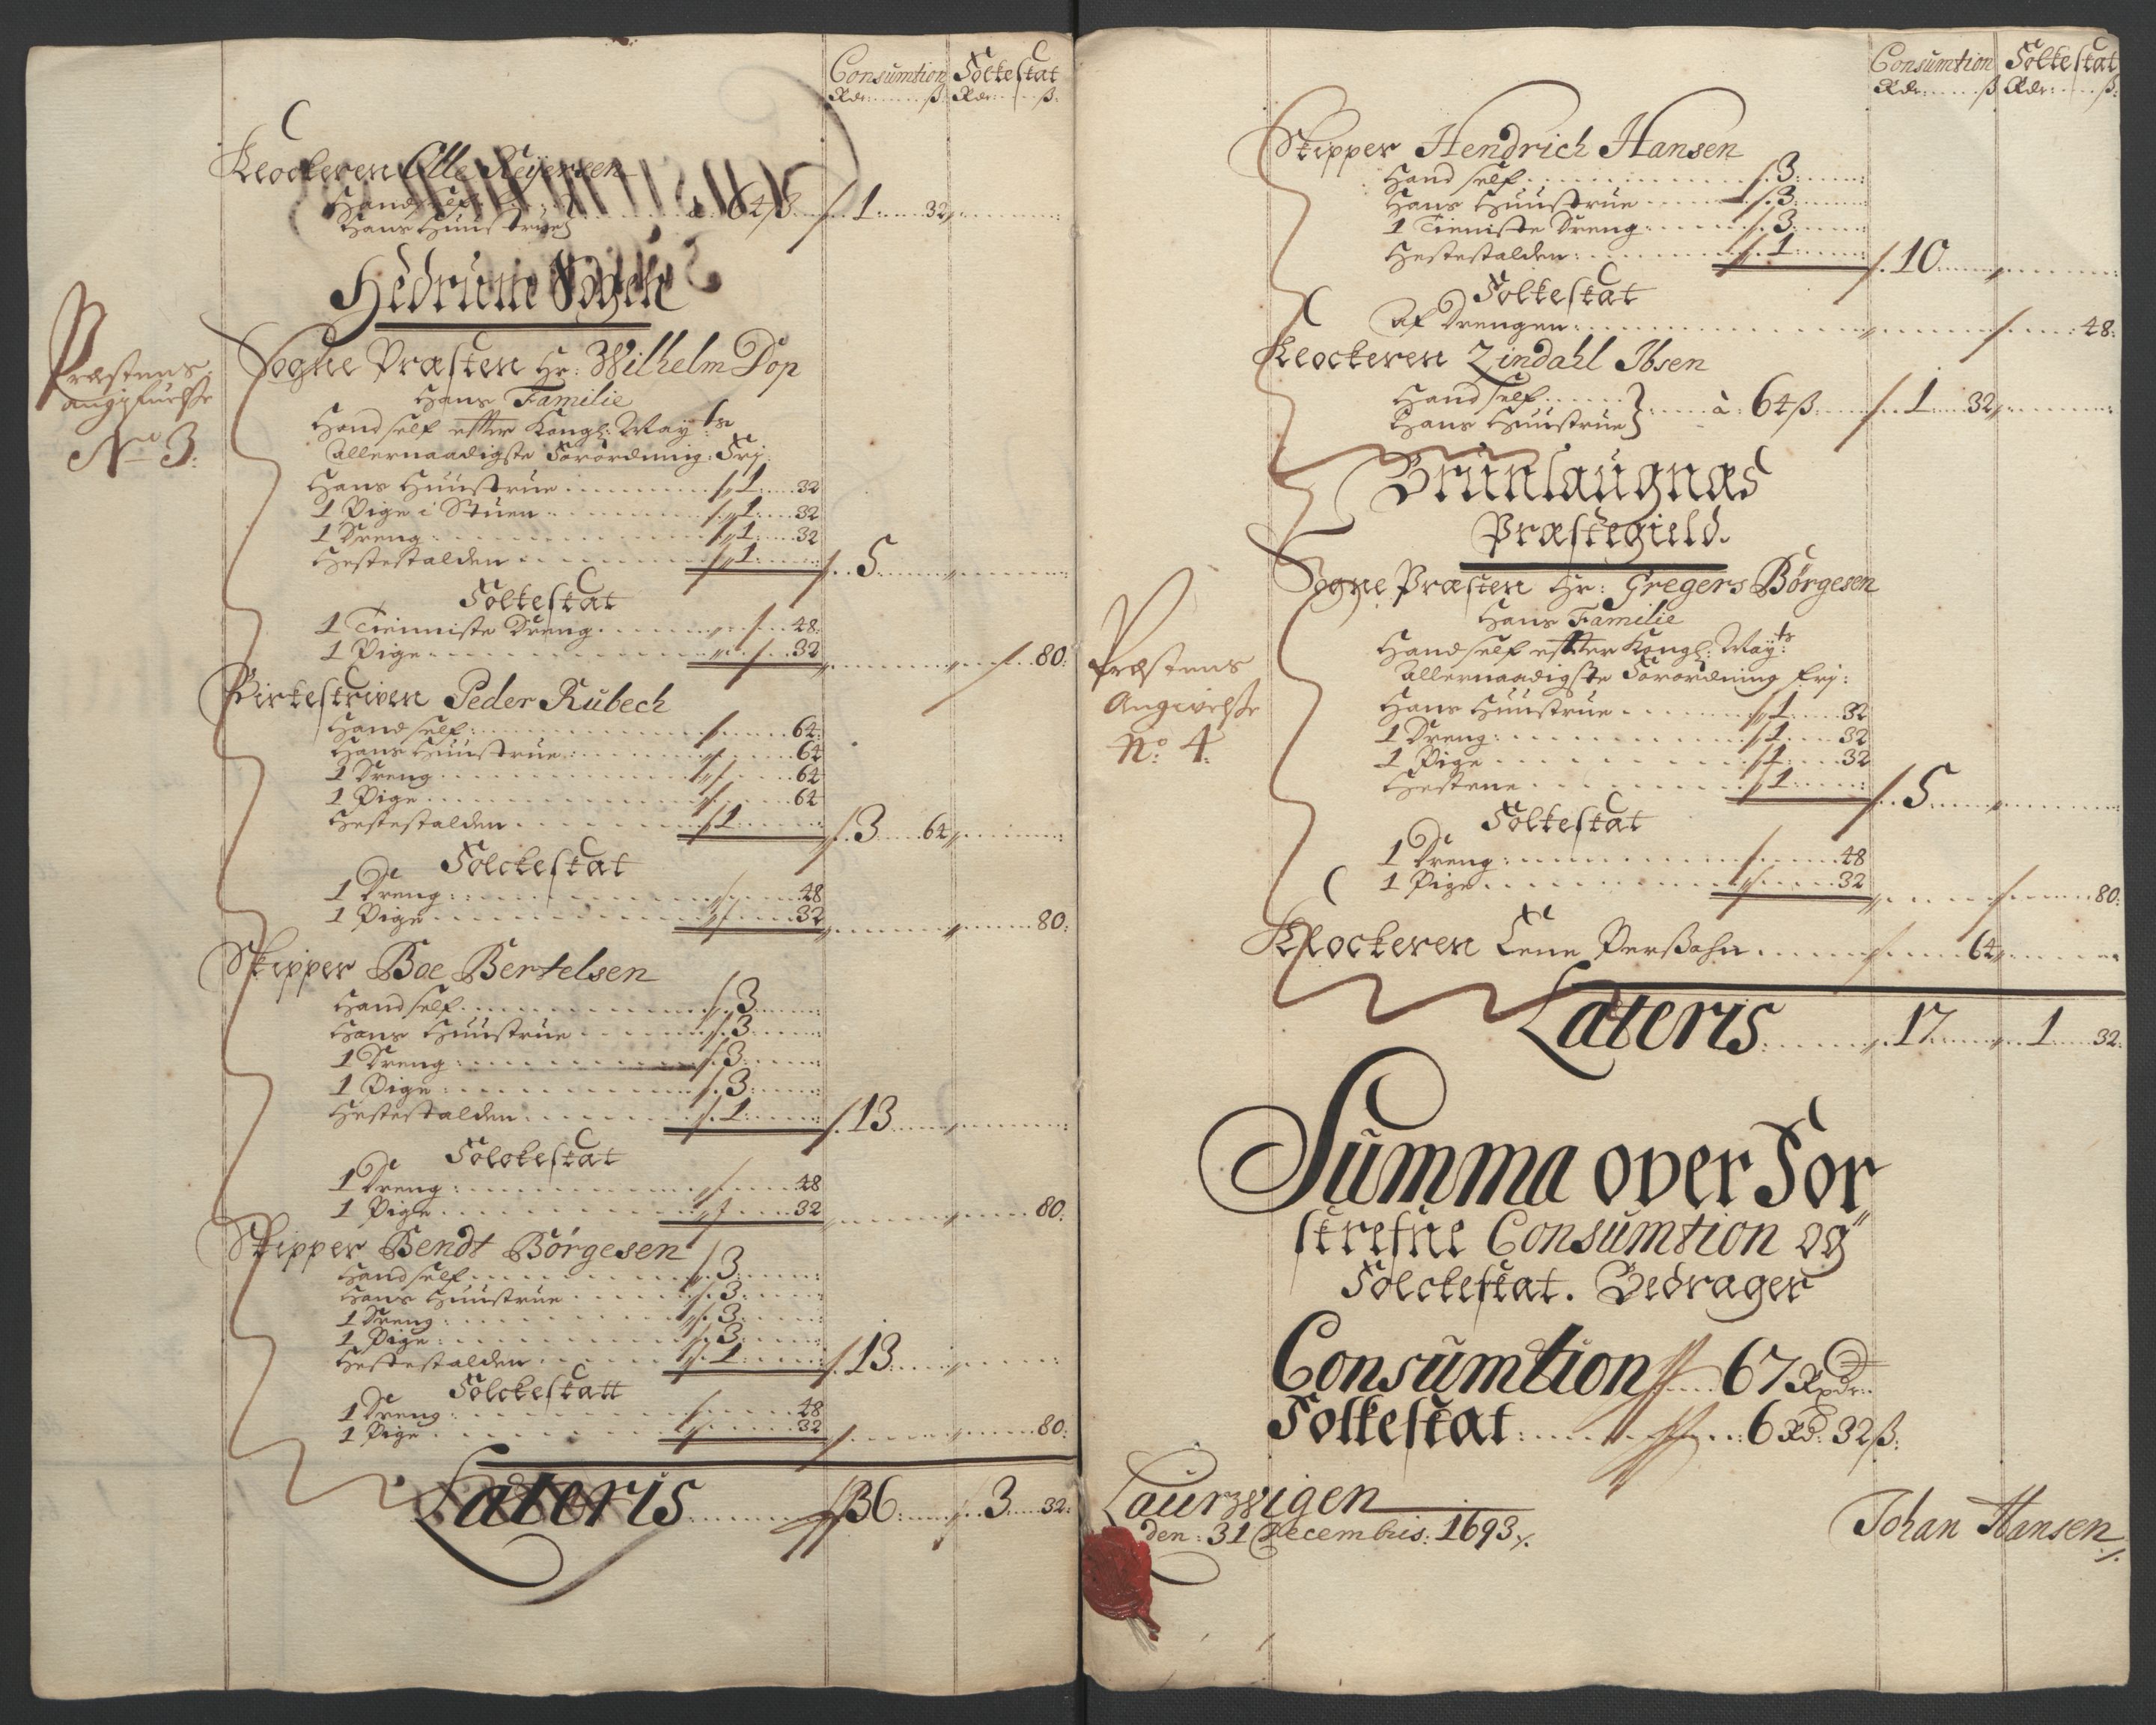 Consumtion Folkeskat
Rdr: ß Rdr: ß:
Klockeren Olle Reÿersen
Hand self
Hans Huustrue} à 64 ß 1 32
Hedrum Sogen
Præstens
No 3:
Sogne Præsten Hr: Wilhelm Pop
Hans Familie
Hand self efter Kongl: Mayts
allernaadigste Forordning: Frj
Hans Huustrue 1 32
1 Pige i Stuen 1 32
1 Dreng 1 32
Hestestalden 1 5
Folkeskat
1 Tienniste Dreng 48:
1 Pige 32 80:
Birkeskriven Peder Rubech
Hand self: 64:
Hans Huustrue: 64
1 Dreng 64
1 Pige 64
Hestestalden 1 3 64
Folckeskat
1 Dreng: 48
1 Pige 32 80:
Skipper Boe Bertelsen
Hand self 3
Hans Huustrue 3
1 Dreng: 3
1 Pige: 3
Hestestalden 1 13
Folckeskat
1 Dreng: 48
1 Pige 32 80:
Skipper Bendt Börgesen
Hand self 3
Hans Huustrue 3
1 Dreng: 3
1 Pige: 3
Hestestalden 1 13
Folckeskatt
1 Dreng: 48
1 Pige 32 80:
Lateris 36 3 32:
Consumtion Folkeskat
Rdr: ß Rdr: ß:
Skipper Hendrich Hansen
Hand self 3
Hans Huustrue 3
1 Tieniste Dreng: 3
Hestestalden: 1 10
Folkeskat
Af Drengen: 48:
Klockeren Lindahl Ibsen
Hand self
Hans Huustrue} à: 64 ß 1 32
Brunlaugnæs
Præstegield.
Præstens
Angivelse
No: 4:
Sogne Præsten Hr: Gregers Börgesen
Hans Familie
Hand self efter Kongl: Mayts:
allernaadigste Forordning frj:
Hans Huustrue 1 32
1 Dreng: 1 32
1 Pige 1 32
Hestene 1 5
Folkeskat
1 Dreng: 48
1 Pige 32 80:
Klockeren 64
Lateris 17 1 32:
Summa over For
skrefne Consumtion og
Folckeskat. Bedrager
Consumtion 67 Rdr:
Folkeskat: 6 Rd: 32 ß:
Laurwigen
den: 31 Decembris: 1693
Johan Hansen